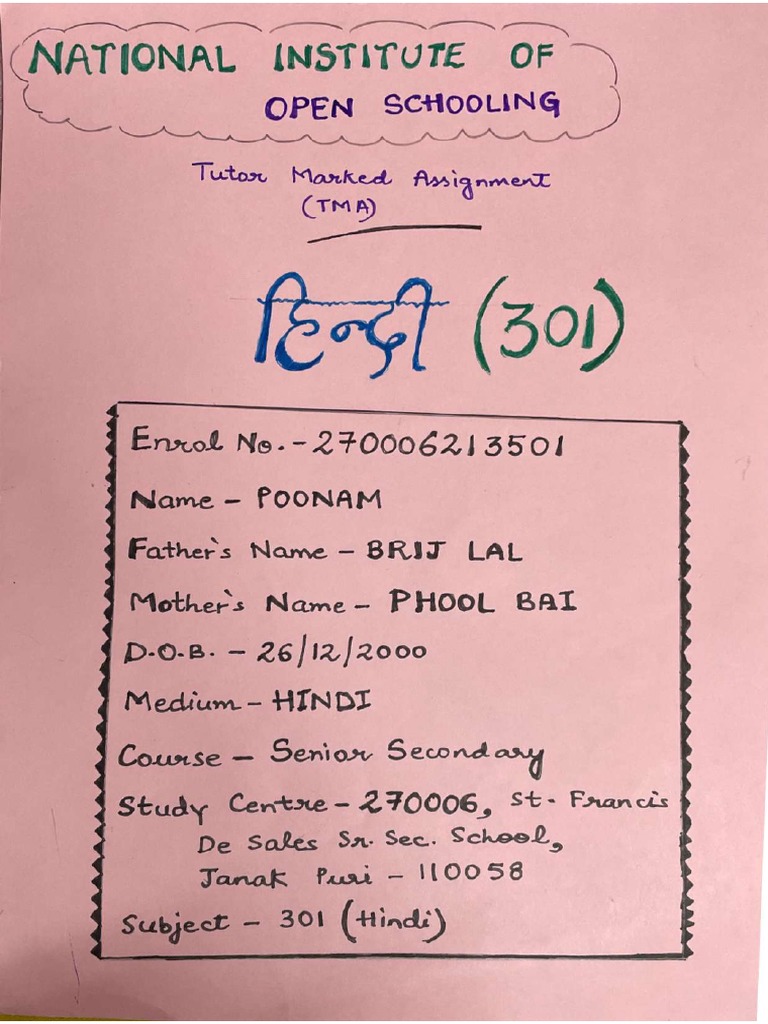 NATIONAL INSTITUTE OF
OPEN SCHOOLING
Tutor Marked Assignment
(TMA)
हिन्दी (301)
Enrol No. - 270006213501
Name - POONAM
Father's Name - BRIJ LAL
Mother's Name - PHOOL BAI
D.O.B. - 26/12/2000
Medium - HINDI
Course - Senior Secondary
Study Centre - 270006, St. Francis
De Sales Sr. Sec. School,
Janak Puri - 110058
Subject - 301 (Hindi)